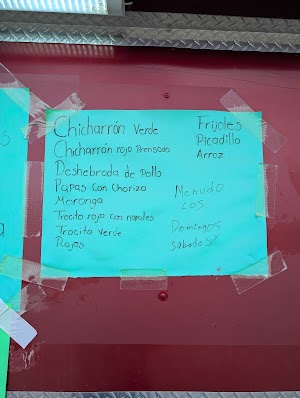 Chicharrón Verde
Chicharrón rojo Prensado
Deshebrada de Pollo
Papas Con Chorizo
Moronga
Trocito rojo con nopales
Trocito Verde
Rajas
Frijoles
Picadillo
Arroz
Menudo
Los
Domingos
Sabados